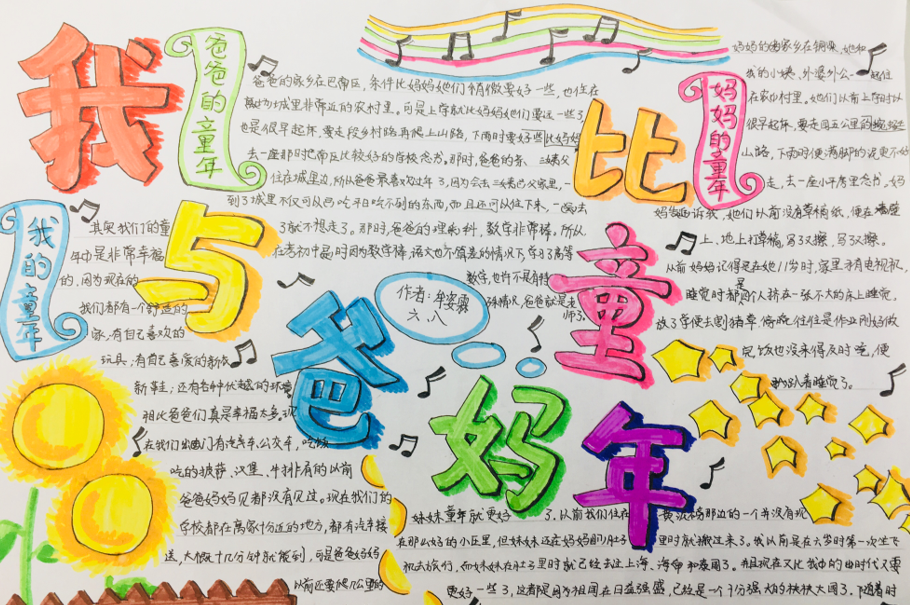 我与爸妈比童年
爸爸的童年
爸爸的家乡在巴南区，条件比妈妈她们稍微要好一些，也住在
离城里非常近的农村里。可是上学就比妈妈她们要远一些了
也是很早起床，要走段乡村路再爬上山路，下雨时要好些比妈妈
去一座那时巴南区比较好的学校念书。那时，爸爸的爷
住在城里边，所以爸爸最喜欢过年了，因为会去
到了城里不仅可以吃平日吃不到的东西，而且还可以住下来，一
了就不想走了。那时，爸爸的理科，数学非常棒。所以
在考初中时因为数学棒，语文也不算差的情况下，
数学，也许不是有特
殊情况，爸爸就是
师了。
妈妈的童年
妈妈的家乡在铜梁，她和
我的小姨、外婆外公一起住
在农村里。她们以前上学时
很早起床，要走四五公里的
山路，下雨时便满脚的泥更不好
走，去一座小平房里念书，妈
妈告诉我，她们以前没有草稿纸，便在
上、地上打草稿，写了又擦，写了又擦。
从前妈妈记得是在她11岁时，家里才有电视机，
睡觉时都是四个人挤在一张不大的床上睡觉，
放了学便去割猪草，往往是作业刚好做
完，饭也没来得及时吃，便
趴着睡觉了。
我的童年
其实我们的童
年中是非常幸福
的，因为现在的
我们都有一个舒适的
家，有自己喜欢的
玩具；有自己喜爱的
新鞋；还有各种优越的环境
相比爸爸们真是幸福太多，现
在我们出门有汽车、公交车，吃饭
吃的披萨、汉堡、牛排有的以前
爸爸妈妈见都没有见过。现在我们的
学校都在离家十分近的地方，都有汽车接
送，大概十几分钟就能到，可是爸爸妈妈
以前还要爬几公里的
作者：牟姿霖
六、八
妹妹童年就更好了。以前我们住在黄泥磅那边的一个并没有现
在那么好的小区里，但妹妹还在妈妈的肚子里时就搬过来了。我以前是在六岁时第一次坐飞
机去旅行，而妹妹在肚子里时就已经去过上海、海南和泰国了。祖现在又比我中的由时代又要
更好一些了，这都是因为祖国在日益强盛，已经是一个十分强大的泱泱大国了。随着时